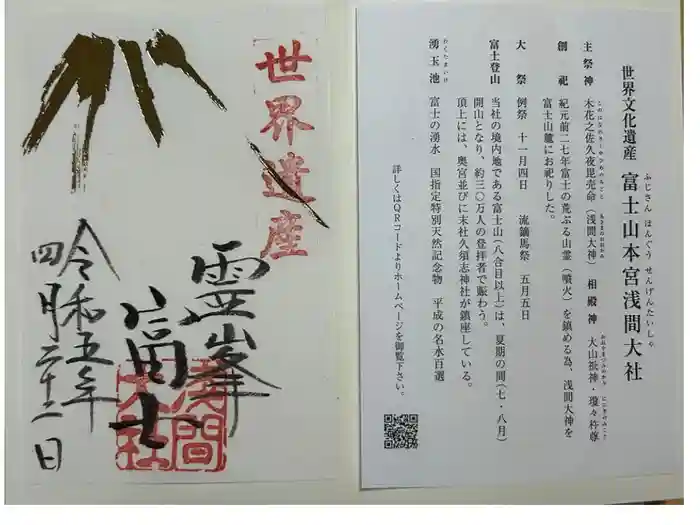 世界文化遺産 富士山本宮浅間大社
ふじさん ほんぐう せんげんたいしゃ
主祭神 木花之佐久夜毘売命（浅間大神） 相殿神 大山祇神・瓊々杵尊
創祀 紀元前二七年富士の荒ぶる山霊（噴火）を鎮める為、浅間大神を
富士山麓にお祀りした。
大祭 例祭 十一月四日 流鏑馬祭 五月五日
富士登山 当社の境内地である富士山（八合目以上）は、夏期の間（七・八月）
開山となり、約三〇万人の登拝者で賑わう。
頂上には、奥宮並びに末社久須志神社が鎮座している。
湧玉池 富士の湧水 国指定特別天然記念物 平成の名水百選
わくたまいけ
詳しくはQRコードよりホームページを御覧下さい。
世界遺産
霊峯
富士
浅間
大社
令和五年
四月二十一日